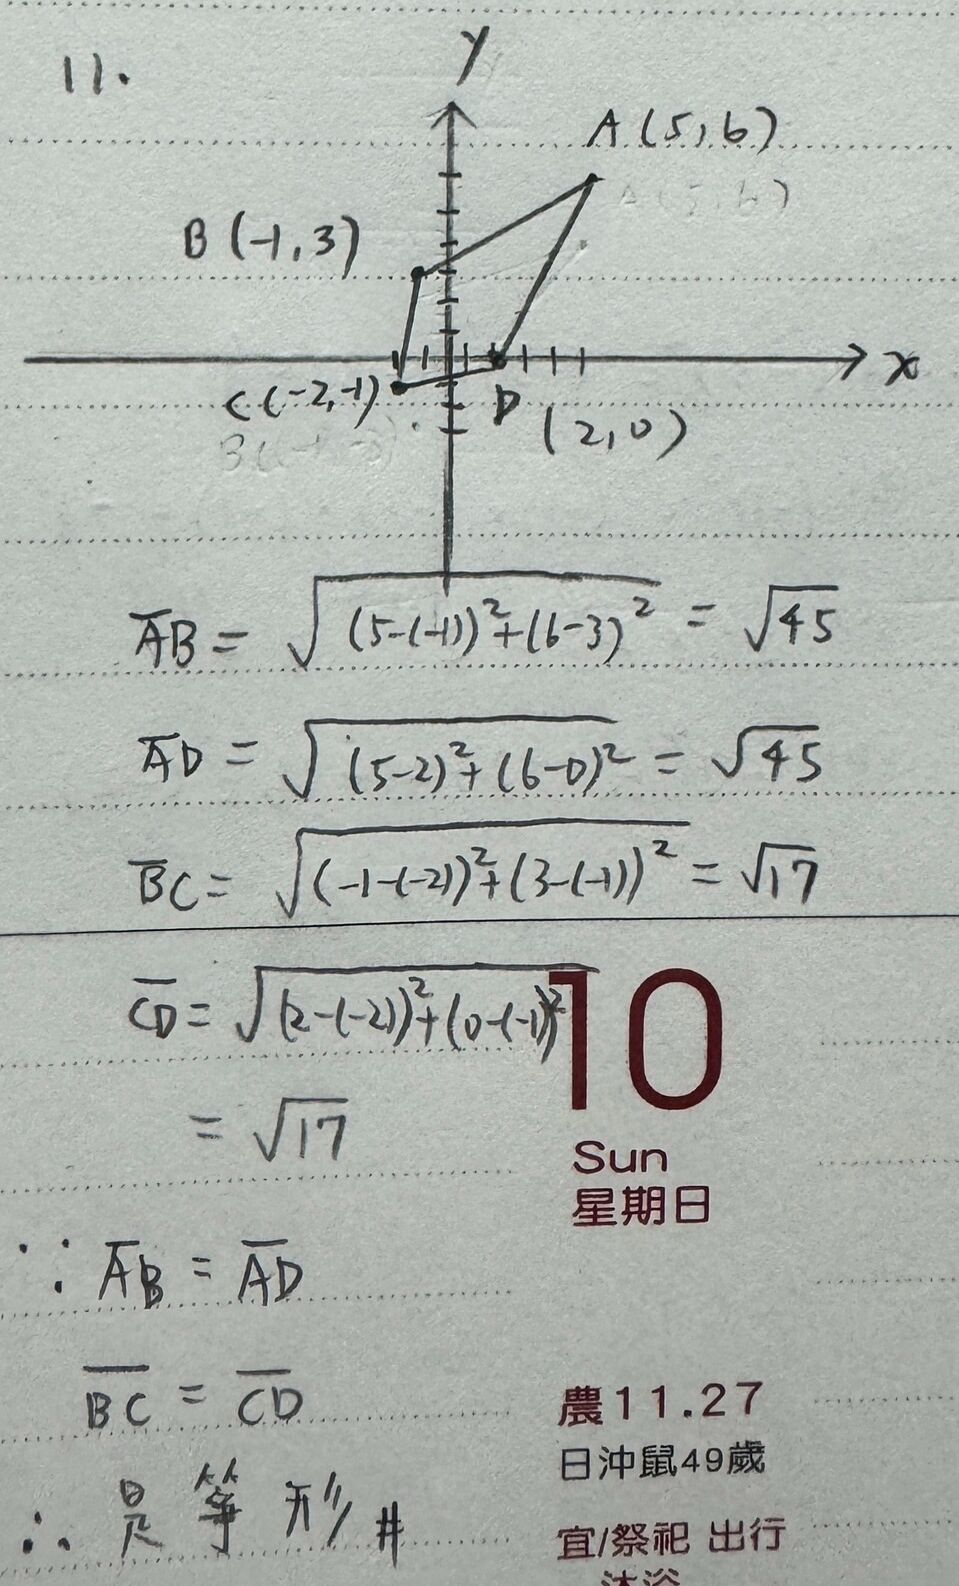 11.
y
A(5,6)
A(5,6)
B(-1,3)
x
C(-2,-1)
D
(2,0)
A̅B̅ = √((5-(-1))²+(6-3)²) = √45
A̅D̅ = √((5-2)²+(6-0)²) = √45
B̅C̅ = √((-1-(-2))²+(3-(-1))²) = √17
C̅D̅ = √((2-(-2))²+(0-(-1))²)
10
= √17
Sun
星期日
∵ A̅B̅ = A̅D̅
B̅C̅ = C̅D̅
農11.27
日沖鼠49歲
∴ 是箏形#
宜/祭祀 出行
沐浴